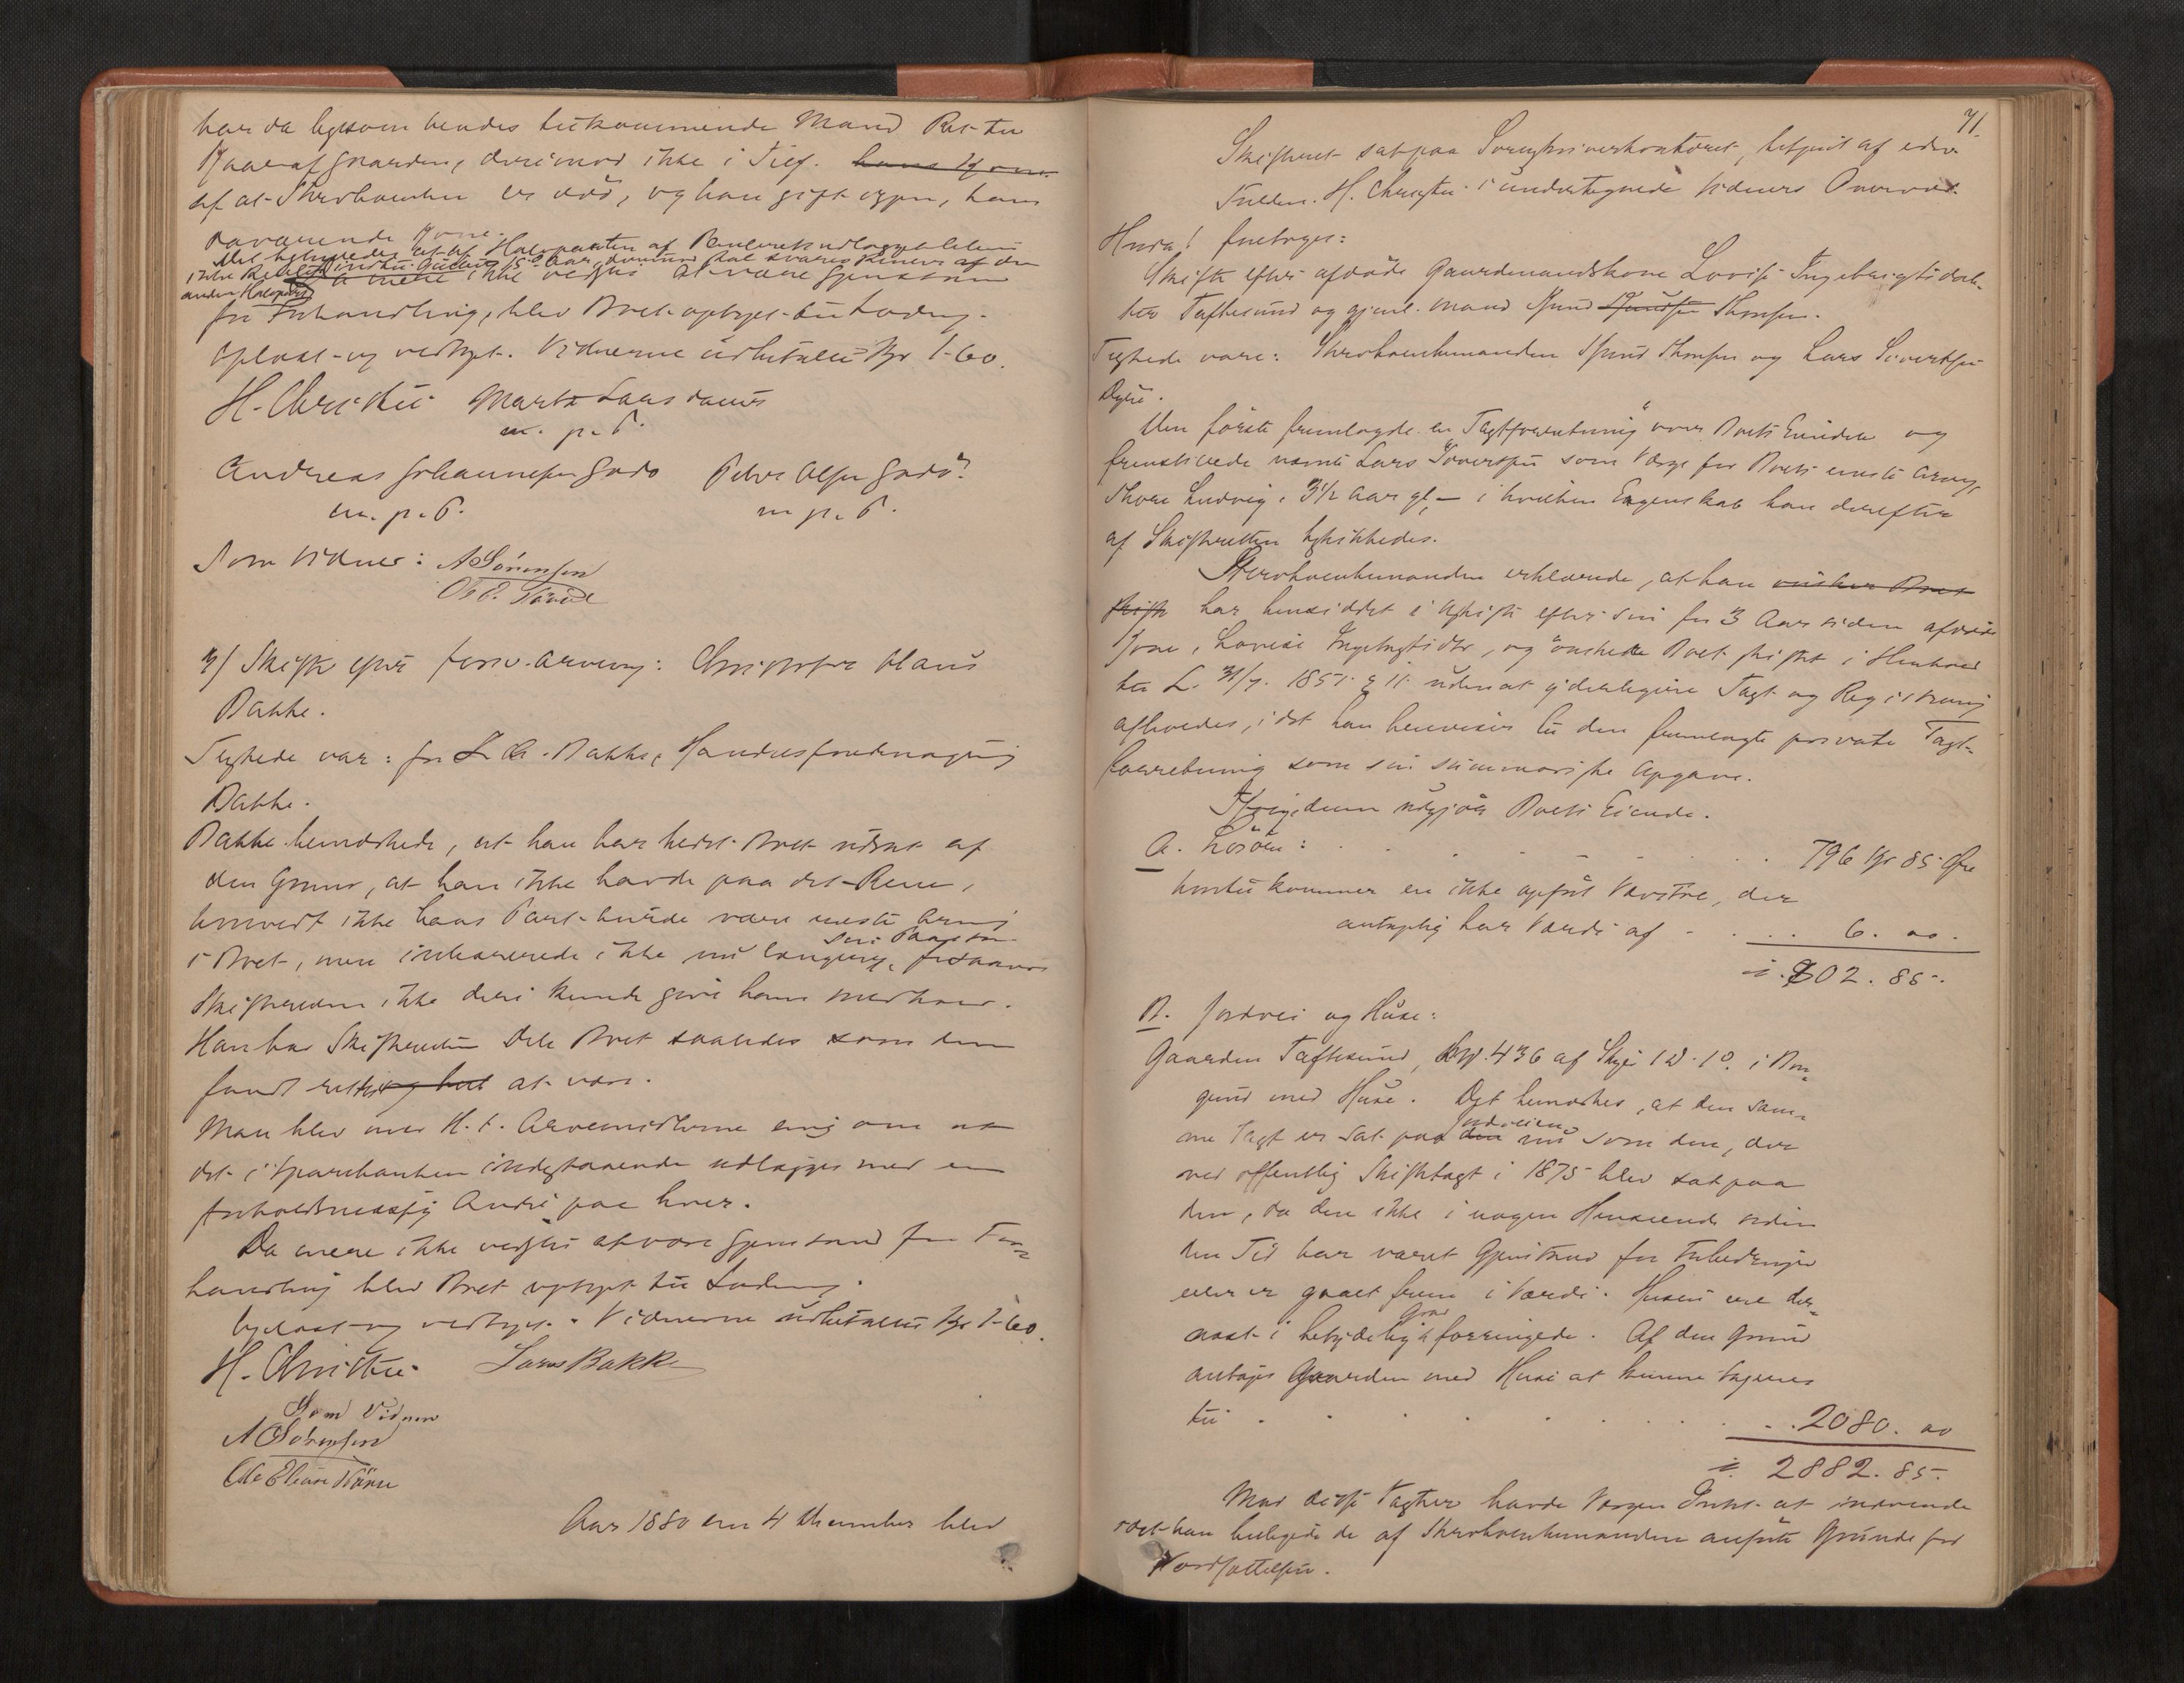 har da ligesom hendes tilkommende Mand Ret til
Kaar af Gaarden, derimod ikke i Tilf. hans Kone
af at Sterboenken er død, og han gift igjen, hans
daværende Kone.
Det
ikke
anden Halvpart
for Forhandling, blev Boet optaget til Lodning.
Oplæst og vedtaget. Vidnerne udbetaltes Kr 1-60.
H. Christie Marta Larsdatter
m. p. P.
Andreas Johannessen Godø Peder Olsen Godø
m. p. P. m. p. P.
Som Vidner: A Sörensen
Ole E.
3/ Skifte efter forsv. Arving: Christopher Claus
Bakke.
Tilstede var: for L. Cl. Bakke, Handelsfuldmægtig
Bakke.
Bakke bemærkede, at han har hedt Boet udsat af
den Grund, at han ikke havde paa det Rene,
hvorvidt ikke hans Part burde være eneste Arving
i Boet, men inhærerede ikke nu længere sin Paastand
Skifteretten ikke deri kunde give ham Medhold.
Han bad Skifteretten dele Boet saaledes som den
fandt rettest og bedst at være.
Man blev med H. t. Arvemidlerne enig om at
det i Sparebanken indestaaende udlægges med en
forholdsmæssig Andel paa hver.
Da mere ikke vidstes at være Gjenstand for For-
handling blev Boet optaget til Lodning.
Oplæst og vedtaget. Vidnerne udbetaltes Kr 1-60.
H. Christie Lars Bakke
Som Vidner
A Sörensen
Ole Elias
Aar 1880 den 4 December blev
71.
Skifteret sat paa Sorenskriverkontoret, betjent af edsv.
Fuldm. H. Christie i undertegnede Vidners Overvær.
Hvorda! foretoges:
Skifte efter afdøde Gaardmandskone Lovise Ingebrigtsdat-
ter Taftesund og gjenl. Mand Knud Knudsen Thorsen.
Tilstede vare: Sterboenkemanden Knud Thorsen og Lars Sivertsen
Den første fremlagde en Taxtforretning over Boets Eiendele og
fremstillede nævnte Lars Sivertsen som Værge for Boets eneste Arving,
Thore Ludvig, 3½ Aar gl, — i hvilken Egenskab han derefter
af Skifteretten beskikkedes.
Sterboenkemanden erklærede, at han ønsker Boet
skifte har hensiddet i uskifte efter sin for 3 Aar siden afdøde
Kone, Lovise Ingebrigtsdtr, og ønskede Boet skiftet i Henhold
til L. 31/7. 1851. § 11. uden at yderligere Taxt og Registrering
afholdes, idet han henviser til den fremlagte private Taxt-
forretning som sin summariske Opgave.
Ifølge denne udgjør Boets Eiende.
A. Løsøre: . . . . . . . . 796 Kr 85 Øre
hertil kommer en ikke opført Vævstol, der
antagelig har Værdi af . . . . 6. 00.
i. 802. 85.
B. Jordvei og Huse:
Gaarden Taftesund, LN. 436 af Skyld 1 D. 1 o. i Bor-
gund med Huse. Det bemærkes, at den sam-
me Taxt er sat paa den Jordveien nu som den, der
ved offentlig Skiftetaxt i 1875 blev sat paa
den, da den ikke i nogen Henseende siden
den Tid har været Gjenstand for Forbedringer
eller er gaaet frem i Værdi. Husene ere der-
næst i betydelig Grad forringede. Af den Grund
antages Gaarden med Huse at kunne taxeres
til . . . . . . . . 2080. 00
i. 2882. 85.
Mod disse Taxter havde Værgen Intet at indvende
idet han billigede de af Sterboenkemanden anførte Grunde for
Værdsættelsen.